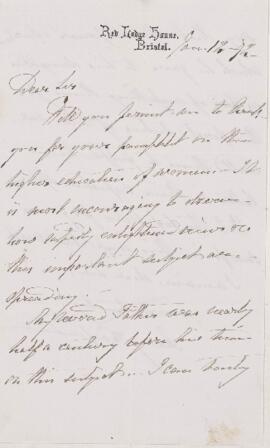 Red Lodge House,
Bristol. Jan. 12 - 72 -
Dear Sir
Will you permit me to thank
you for your pamphlet on the
higher education of women - It
is most encouraging to
how rapidly enlightened views on
this important subject are
spreading.
My revered Father was nearly
half a century before his time
on this subject - I can truly